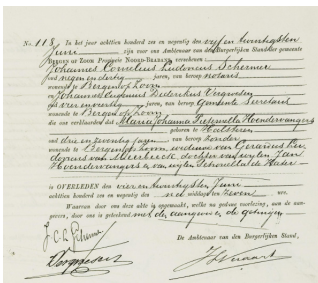 No. 118. In het jaar achttien honderd zes en negentig den vijf en twintigsten
Juni zijn voor ons Ambtenaar van den Burgerlijken Stand der gemeente
BERGEN OP ZOOM PROVINCIE NOORD-BRABAND verschenen:
Johannes Cornelius Ludovicus Schermer
oud negen en dertig jaren, van beroep notaris
wonende te Bergen op Zoom
en Johannes
oud vier en veertig jaren, van beroep Gemeente Secretaris
wonende te Bergen op Zoom
die ons verklaarden dat Maria Johanna Petronella Hoendervangers
geboren te
oud drie en zeventig jaren van beroep zonder
wonende te Bergen op Zoom, weduwe van Gerardus
van Meerbeeck, dochter van wijlen Jan
Hoendervangers en van wijlen
is OVERLEDEN den vier en twintigsten Juni
achttien honderd zes en negentig des ten half zeven ure.
Waarvan door ons deze akte is opgemaakt, welke na gedane voorlezing, aan de aan-
gevers, door ons is geteekend met de aangevers de getuigen
De Ambtenaar van den Burgerlijken Stand,